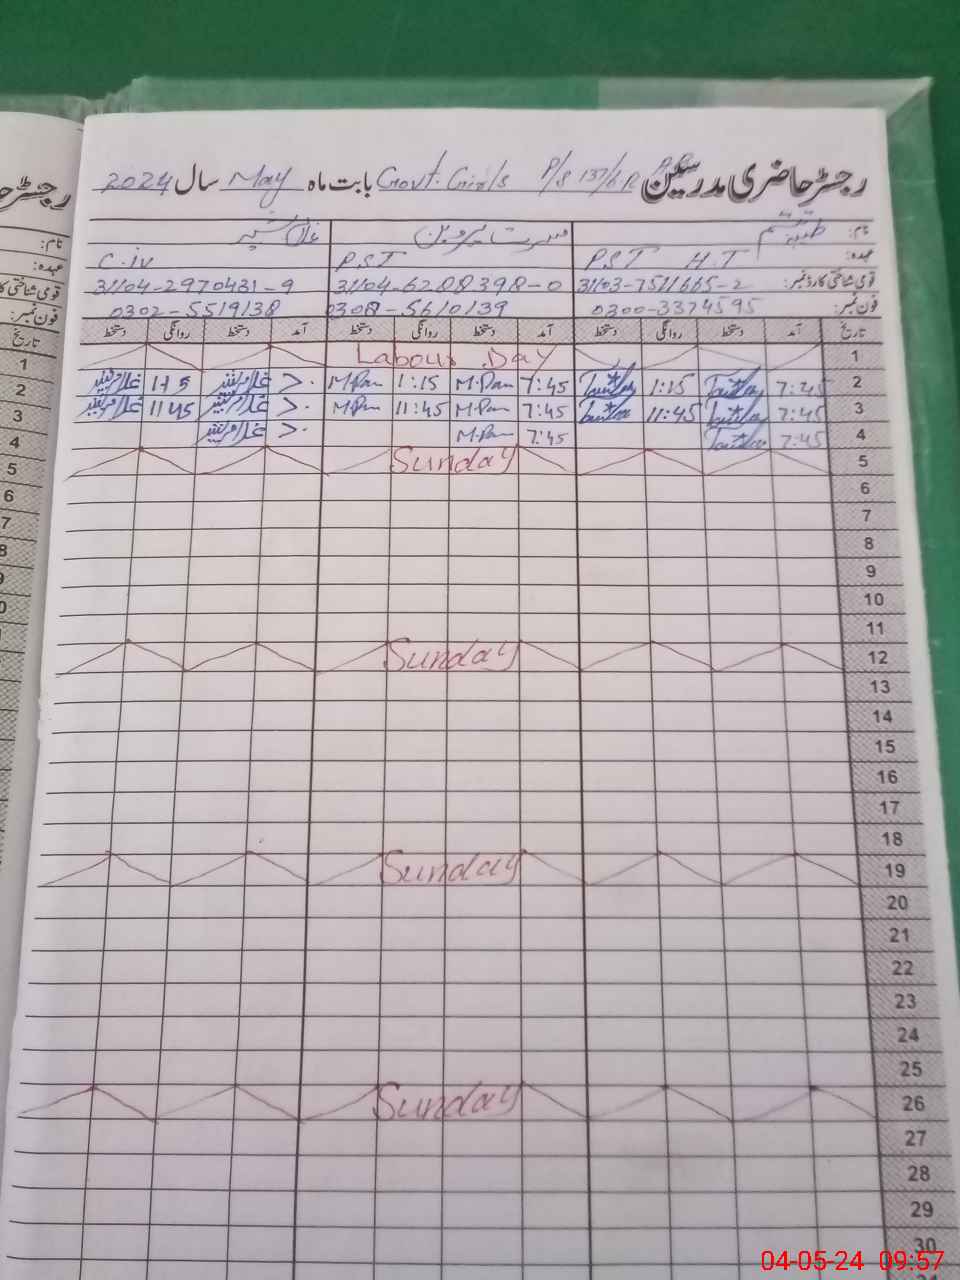 رجسٹر حاضری مدرسین Govt. Girls P/S 137/6R بابت ماہ May سال 2024
نام: طیبہ تبسم مسرت پروین غلام شبیر
عہدہ: PST H.T P.S.T C.iv
قومی شناختی کارڈ نمبر: 31103-7511665-2 31104-6288398-0 31104-2970431-9
فون نمبر: 0300-3374595 0308-5610139 0302-5519138
تاریخ آمد دستخط روانگی دستخط آمد دستخط روانگی دستخط آمد دستخط روانگی دستخط
1 Labour Day
2 7:45 1:15 7:45 M.Pan 1:15 M.Pan 7:00 غلام شبیر 1-15 غلام شبیر
3 7:45 11:45 7:45 M.Pan 11:45 M.Pan 7:00 غلام شبیر 11 45 غلام شبیر
4 7:45 7:45 M.Pan 7:00 غلام شبیر
5 Sunday
6
7
8
9
10
11
12 Sunday
13
14
15
16
17
18
19 Sunday
20
21
22
23
24
25
26 Sunday
27
28
29
30
04-05-24 09:57